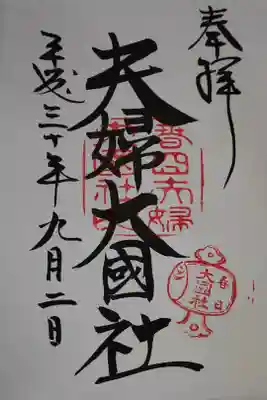 奉拝
夫婦大國社
平成三十年九月二日
春日夫婦
大國社
春日
大國社